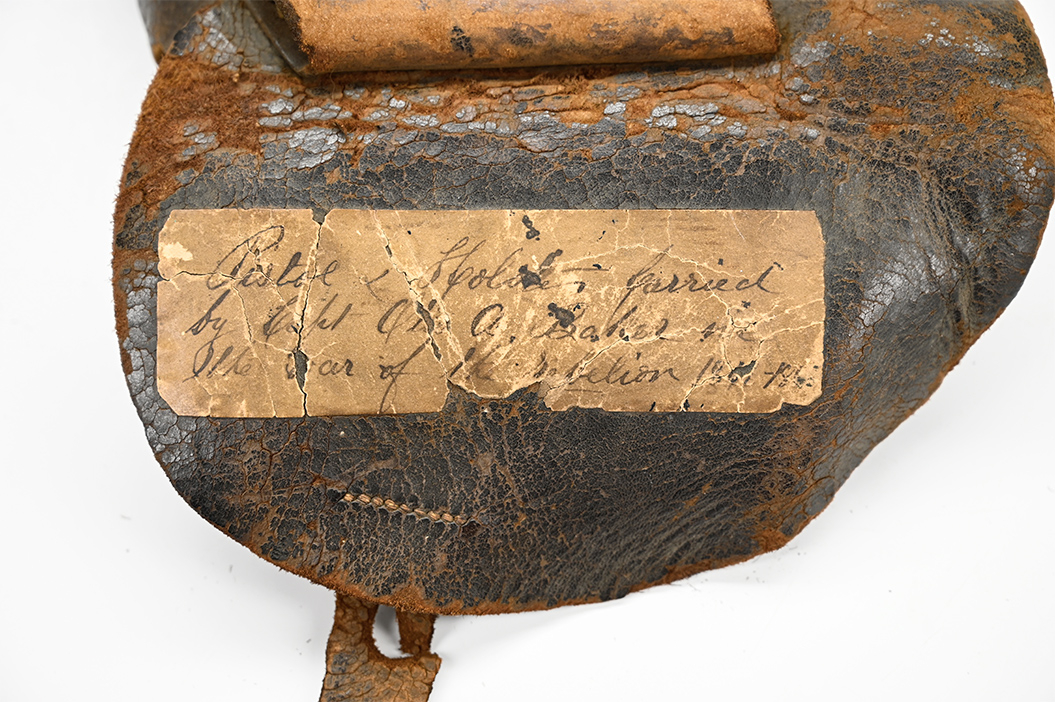 Pistol & Holster Carried
by Capt Chs A. Baker in
the War of the Rebelion 1861-1865